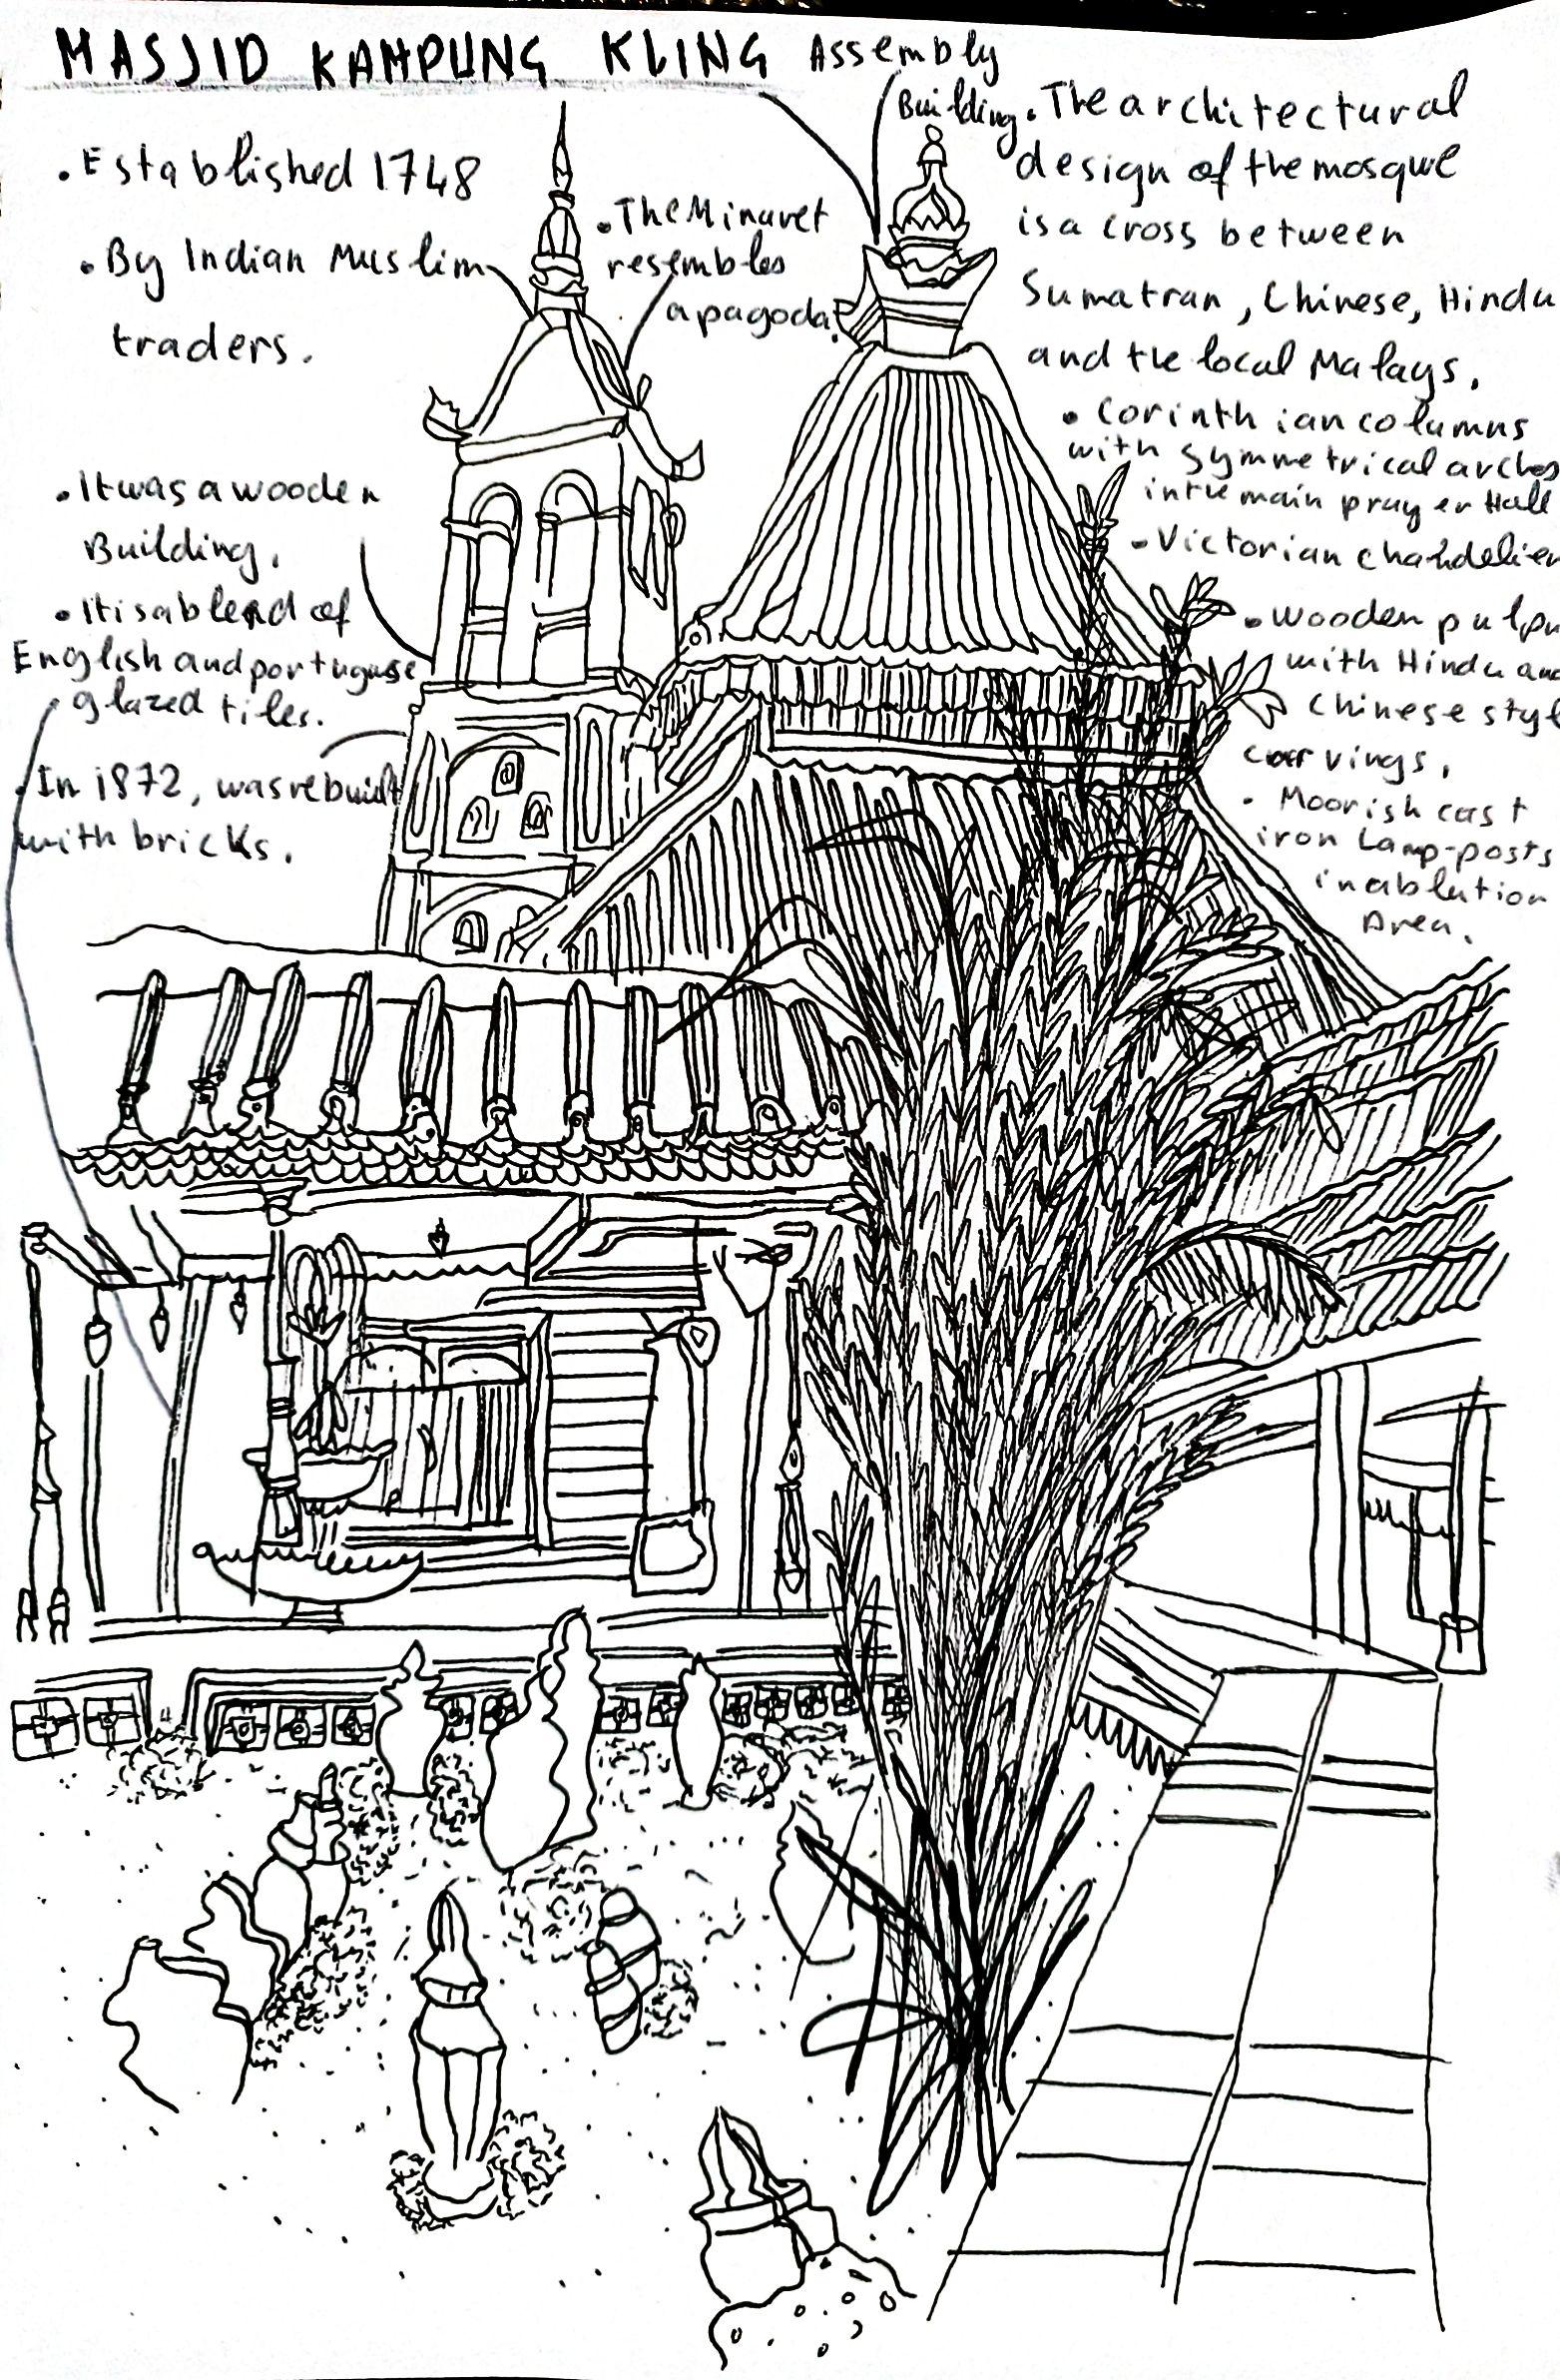 MASJID KAMPUNG KLING
Assembly
Building.
• Established 1748
• By Indian Muslim
traders.
• The Minaret
resembles
a pagoda.
• It was a wooden
Building.
• It is a blend of
English and portuguese
glazed tiles.
• In 1872, was rebuilt
with bricks.
• The architectural
design of the mosque
is a cross between
Sumatran, Chinese, Hindu
and the local Malays.
• Corinthian columns
with symmetrical arches
in the main prayer Hall
• Victorian chandelier
• Wooden pulpi
with Hindu and
Chinese style
carvings.
• Moorish cast
iron Lamp-posts
in ablution
Area.